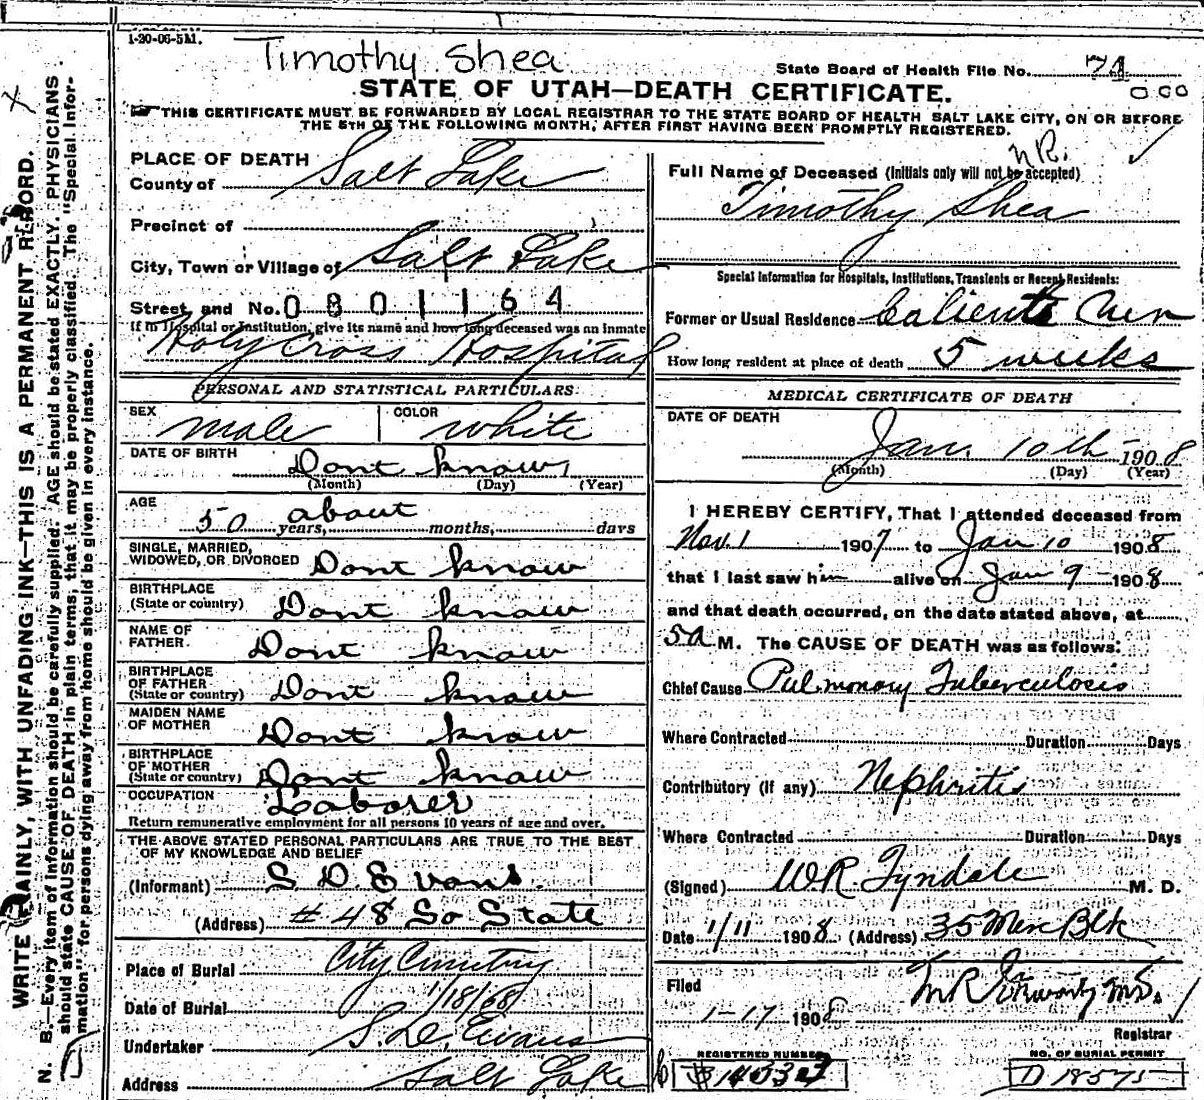 1-20-06-5M.
Timothy Shea
State Board of Health File No. 71
000
STATE OF UTAH—DEATH CERTIFICATE.
THIS CERTIFICATE MUST BE FORWARDED BY LOCAL REGISTRAR TO THE STATE BOARD OF HEALTH SALT LAKE CITY, ON OR BEFORE
THE 5TH OF THE FOLLOWING MONTH, AFTER FIRST HAVING BEEN PROMPTLY REGISTERED.
WRITE PLAINLY, WITH UNFADING INK—THIS IS A PERMANENT RECORD.
N. B.—Every item of information should be carefully supplied. AGE should be stated EXACTLY. PHYSICIANS
should state CAUSE OF DEATH in plain terms, that it may be properly classified. The "Special Infor-
mation" for persons dying away from home should be given in every instance.
PLACE OF DEATH
County of Salt Lake
Precinct of
City, Town or Village of Salt Lake
Street and No. 0801164
If in Hospital or Institution, give its name and how long deceased was an inmate
Holy Cross Hospital
PERSONAL AND STATISTICAL PARTICULARS
SEX male COLOR white
DATE OF BIRTH Dont know
(Month) (Day) (Year)
AGE about
50 years, months, days
SINGLE, MARRIED,
WIDOWED, OR DIVORCED Dont know
BIRTHPLACE
(State or country) Dont know
NAME OF
FATHER Dont know
BIRTHPLACE
OF FATHER
(State or country) Dont know
MAIDEN NAME
OF MOTHER Dont know
BIRTHPLACE
OF MOTHER
(State or country) Dont know
OCCUPATION Laborer
Return remunerative employment for all persons 10 years of age and over.
THE ABOVE STATED PERSONAL PARTICULARS ARE TRUE TO THE BEST
OF MY KNOWLEDGE AND BELIEF
(Informant) S D Evans
(Address) #48 So State
Place of Burial City Cemetry
Date of Burial 1/18/08
Undertaker S. D. Evans
Address Salt Lake
N.R.
Full Name of Deceased (Initials only will not be accepted)
Timothy Shea
Special Information for Hospitals, Institutions, Transients or Recent Residents:
Former or Usual Residence Caliente
How long resident at place of death 5 weeks
MEDICAL CERTIFICATE OF DEATH
DATE OF DEATH
Jan. 10th 1908
(Month) (Day) (Year)
I HEREBY CERTIFY, That I attended deceased from
Nov. 1 1907 to Jan 10 1908
that I last saw him alive on Jan 9 1908
and that death occurred, on the date stated above, at
5 a M. The CAUSE OF DEATH was as follows:
Chief Cause Pulmonary Tuberculosis
Where Contracted Duration Days
Contributory (if any) Nephritis
Where Contracted Duration Days
(Signed) WR Tyndale M. D.
Date 1/11 1908 (Address) 35 Mer Blk
Filed
1-17 1908
Registrar
REGISTERED NUMBER
NO. OF BURIAL PERMIT
D 18575